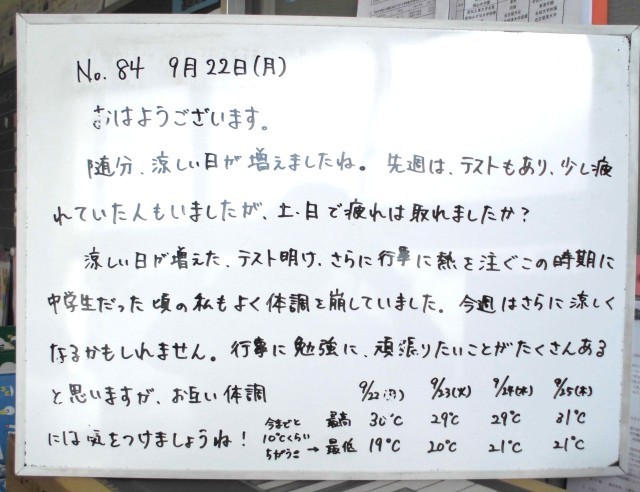 No. 84 9月22日(月)
おはようございます。
随分、涼しい日が増えましたね。先週は、テストもあり、少し疲
れていた人もいましたが、土、日で疲れは取れましたか?
涼しい日が増えた、テスト明け、さらに行事に熱を注ぐこの時期に
中学生だった頃の私もよく体調を崩していました。今週はさらに涼しく
なるかもしれません。行事に勉強に、頑張りたいことがたくさんある
と思いますが、お互い体調
には気をつけましょうね!
9/22(月) 9/23(火) 9/24(水) 9/25(木)
最高 30℃ 29℃ 29℃ 31℃
最低 19℃ 20℃ 21℃ 21℃
今までと
10℃くらい
ちがう →